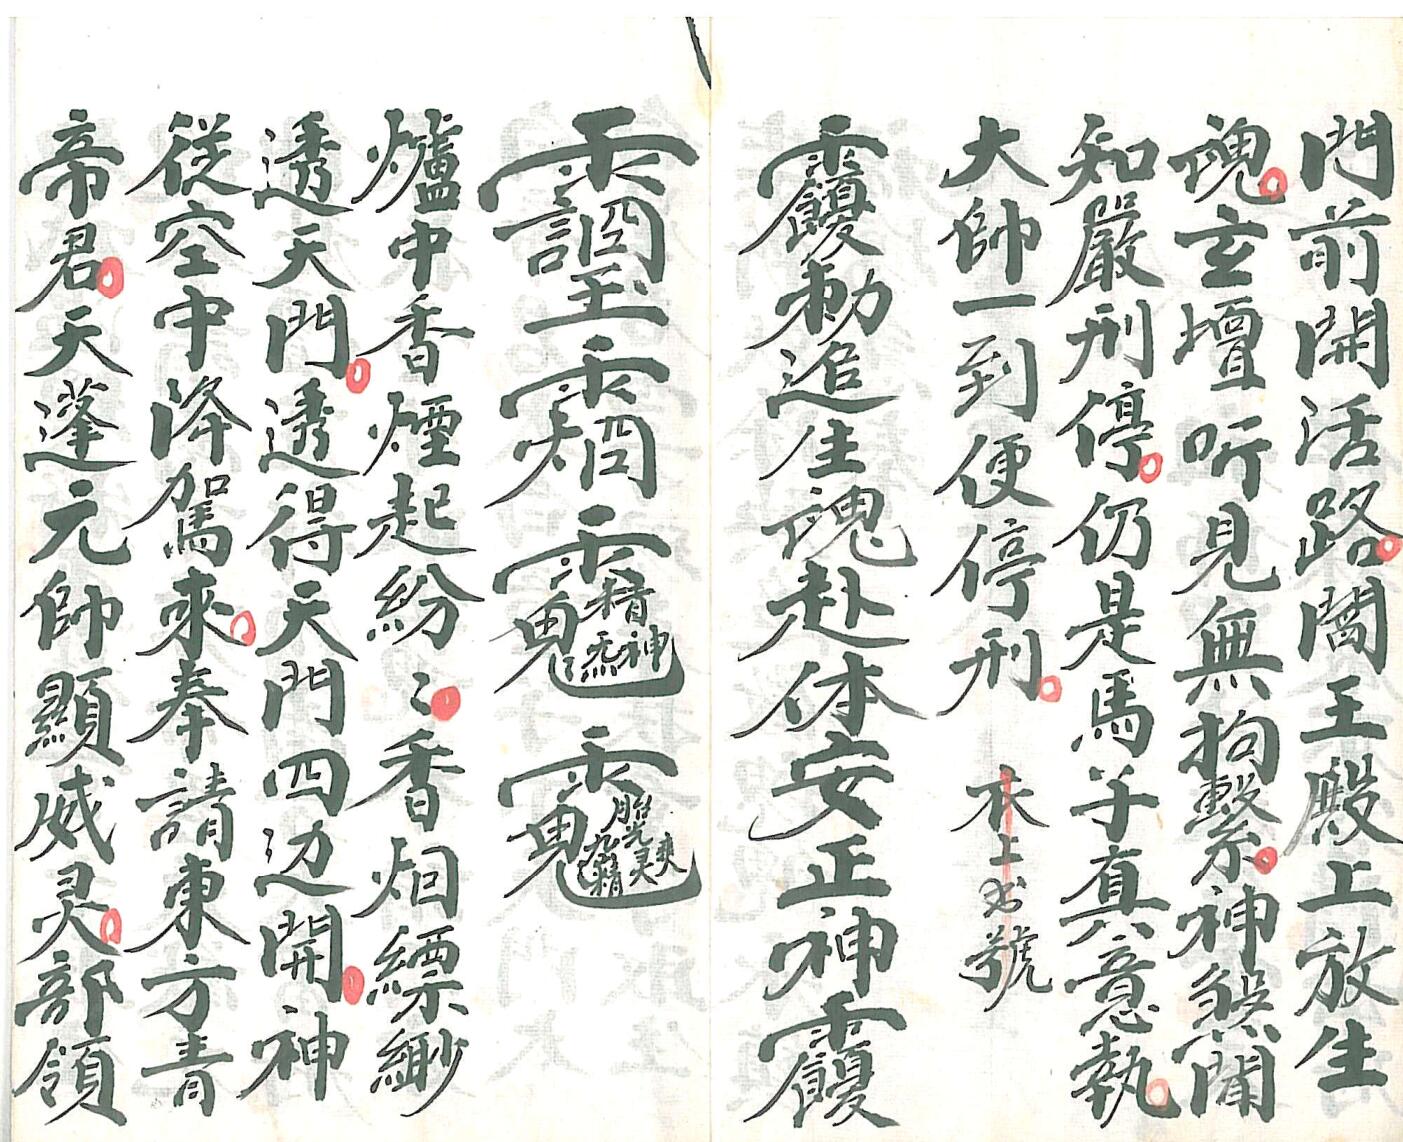 門前開活路閻王殿上放生
魂玄壇听見無拘繫神煞聞
知嚴刑停仍是馬子真意執
大帥一到便停刑
衣上書號
勅追生魂赴体安正神
爐中香煙起紛〻香烟縹緲
透天門透得天門四边開神
從空中降駕來奉請東方青
帝君天蓬元帥顯威灵部領